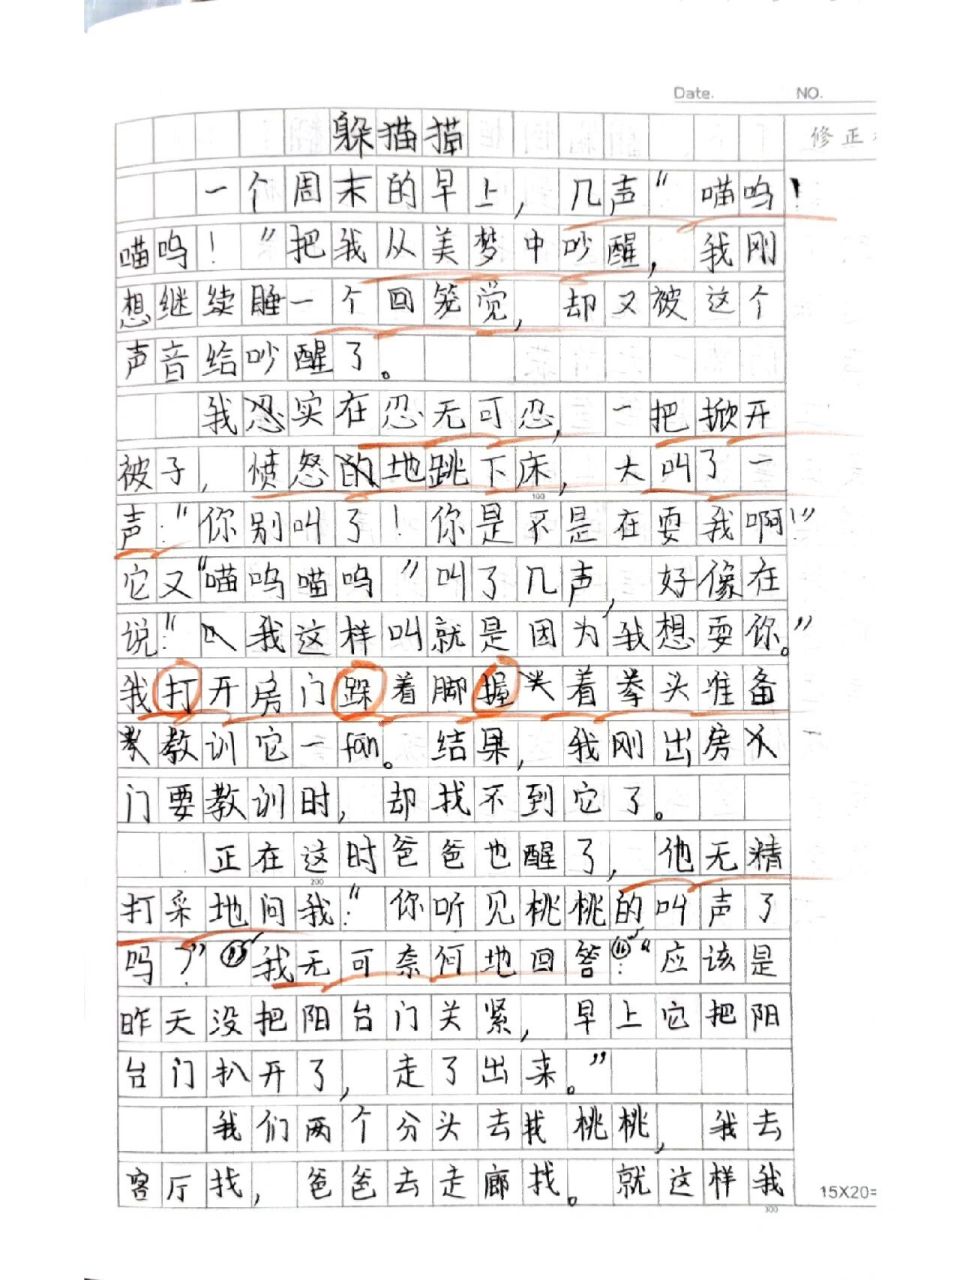 Date. NO.
躲猫猫
修正
一个周末的早上，几声“喵呜！
喵呜！”把我从美梦中吵醒，我刚
想继续睡一个回笼觉，却又被这个
声音给吵醒了。
我忍实在忍无可忍，一把掀开
被子，愤怒的地跳下床，大叫了一
声：“你别叫了！你是不是在耍我啊！”
它又“喵呜喵呜”叫了几声，好像在
说：“我这样叫就是因为我想耍你。”
我打开房门跺着脚握着拳头准备
教训它一fān。结果，我刚出房
门要教训时，却找不到它了。
正在这时爸爸也醒了，他无精
打采地问我：“你听见桃桃的叫声了
吗？”我无可奈何地回答：“应该是
昨天没把阳台门关紧，早上它把阳
台门扒开了，走了出来。”
我们两个分头去找桃桃，我去
客厅找，爸爸去走廊找。就这样我
100
200
300
15X20=